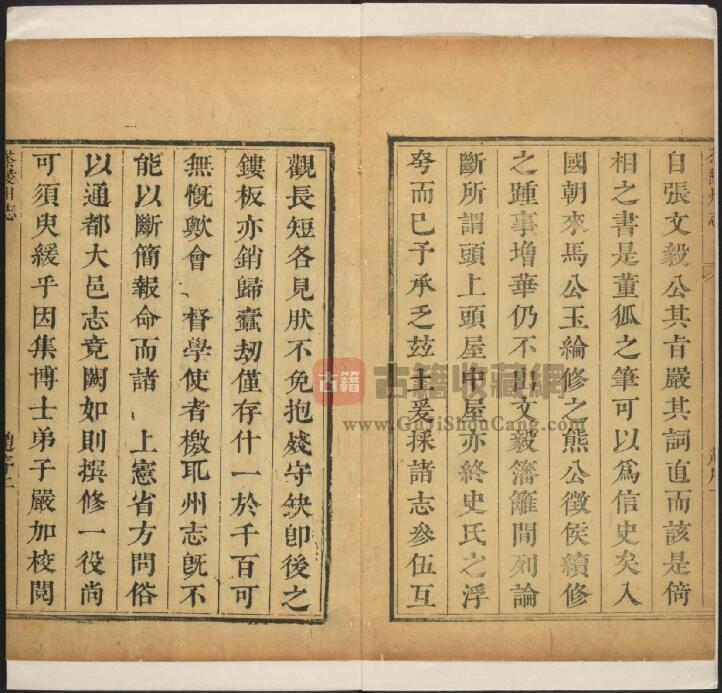 自張文毅公其旨嚴其詞直而該是倚
相之書是董狐之筆可以爲信史矣入
國朝來馬公玉綸修之熊公徵侯續修
之踵事增華仍不出文毅籓籬間列論
斷所謂頭上頭屋中屋亦終史氏之浮
夸而已予承乏玆土爰採諸志參伍互
觀長短各見狀不免抱殘守缺卽後之
鏤板亦銷歸蠹刼僅存什一於千百可
無慨歟會 督學使者檄取州志旣不
能以斷簡報命而諸 上憲省方問俗
以通都大邑志竟闕如則撰修一役尚
可須臾緩乎因集博士弟子嚴加校閱
茶陵州志
古籍
古籍收藏網
www.GujiShouCang.com